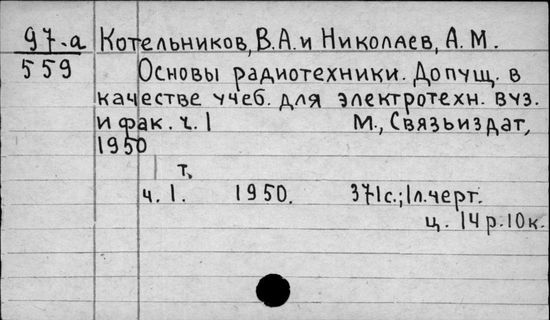 97-а Котельников, В.А. и Николаев, А.М.
559 Основы радиотехники. Допущ. в
качестве учеб. для электротехн. вуз.
и фак. ч. 1 М., Связьиздат,
1950
1 т.
ч. 1. 1950. 371с.; 1л.черт.
ц. 14р.10к.